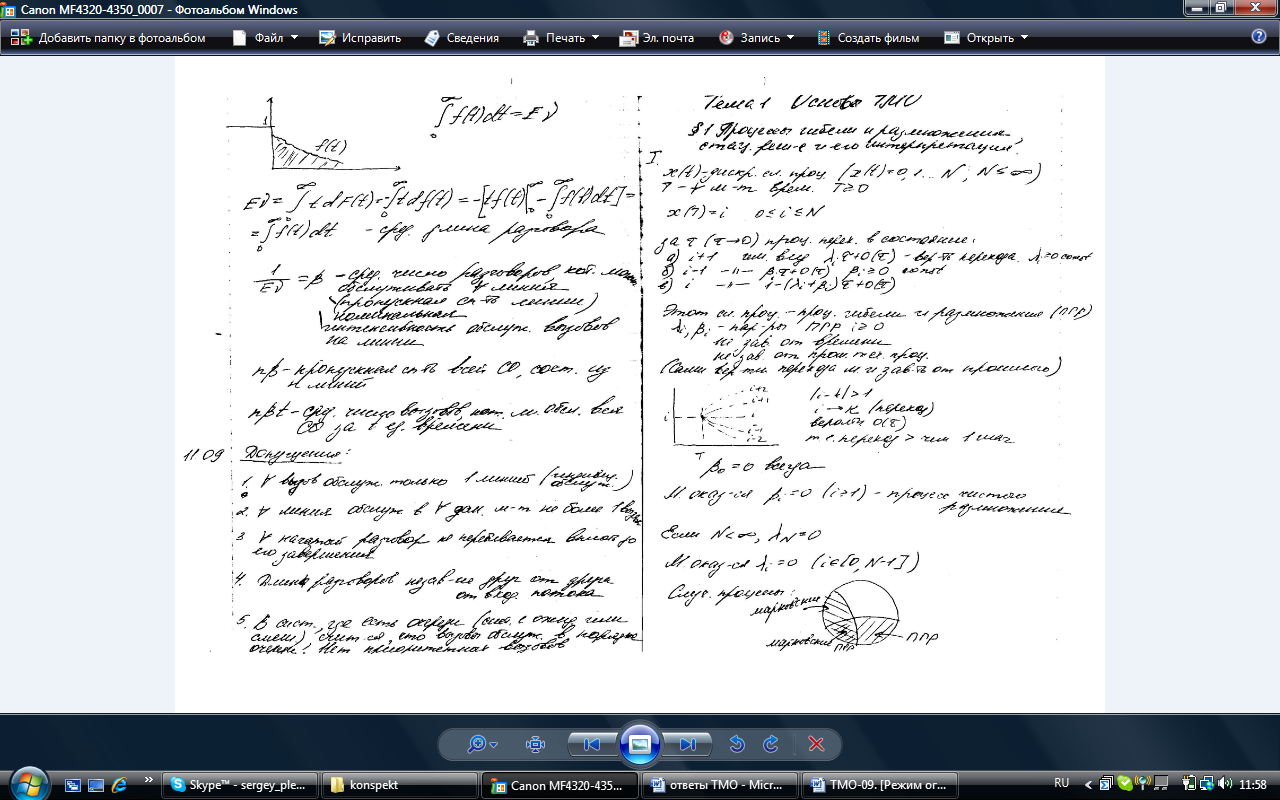 Canon MF4320-4350_0007 - Фотоальбом Windows
Добавить папку в фотоальбом Файл Исправить Сведения Печать Эл. почта Запись Создать фильм Открыть
1
f(t)
∫f(t)dt = Eν
= ∫f(t)dt - сред. длина разговора
1/Eν = β - сред. число разговоров, кот. может
обслуживать ∀ линия
(пропускная сп-ть линии)
номинальная
интенсивность обслуж. вызовов
на линии
nβ - пропускная сп-ть всей СО, сост. из
n линий
nβt - сред. число вызовов, кот. м. обсл. вся
СО за t ед. времени
11 09 Допущения:
1. ∀ вызов обслуж. только 1 линией
2. ∀ линия обслуж в ∀ дан. м-т не более 1
3 ∀ начатый разговор не прерывается вплоть до
его завершения
4. Длины разговоров незав-ые друг от друга
от вход. потока
5. В сист., где есть очереди (сист. с ожид. или
смеш.), счит-ся, что вызовы обслуж. в порядке
очереди! Нет приоритетных вызовов
Тема 1 Основы ТМО
§1 Процессы гибели и размножения,
стац. реш-е и его интерпретация.
I.
x(t) - дискр. сл. проц. (x(t)=0,1...N; N≤∞)
T - ∀ м-т врем. T≥0
x(T)=i 0≤i≤N
за τ (τ→0) проц. перех. в состояние:
а) i+1 λiτ+0(τ) - вер-ть перехода. λi≥0 const
б) i-1 -"- βiτ+0(τ) βi≥0 const
в) i -"- 1-(λi+βi)τ+0(τ)
Этот сл. проц. - проц. гибели и размножения (ПГР)
λi, βi - пар-ры ПГР i≥0
не зав. от времени
не зав. от прош. теч. проц.
(Сами вер-ти перехода м и зав-ть от прошлого)
i+2
i+1
i
i-1
i-2
T
|i-k|>1
i→k (переход)
вероятн 0(τ)
т.е. переход > чем 1 шаг
β0=0 всегда
М. оказ-ся βi=0 (i≥1) - процесс чистого
размножения
Если N<∞, λN=0
М. оказ-ся λi=0 (i∈[0, N-1])
Случ. процессы:
марковские
марковские ПГР
ПГР
Skype™ - sergey_ple... konspekt Canon MF4320-435... ответы ТМО - Micr... ТМО-09. [Режим ог... RU 11:58